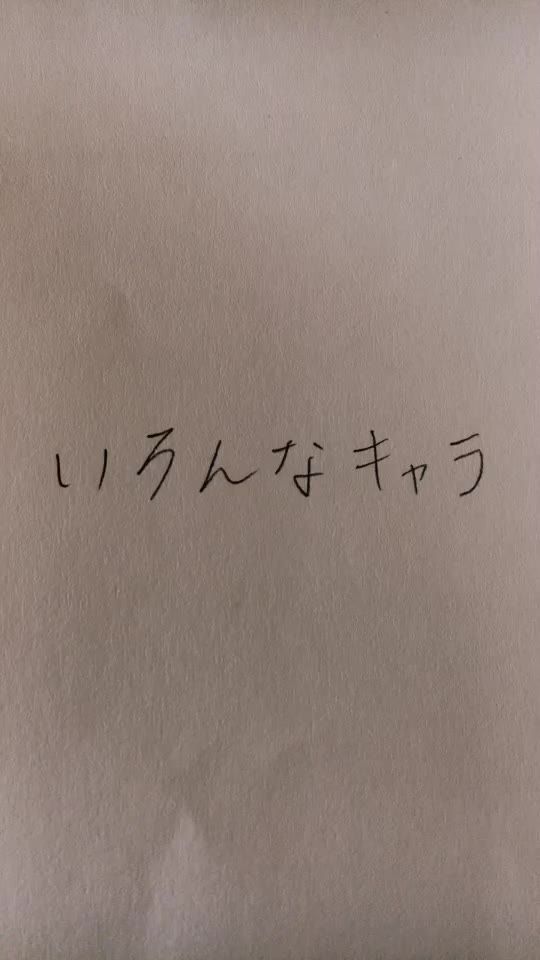 いろんなキャラ